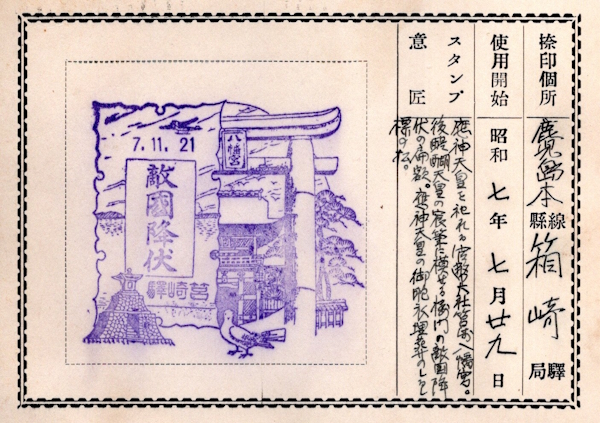 捺印個所
鹿児島本線
縣
箱崎
驛
局
使用開始
昭和七年七月廿九日
スタンプ
意匠
應神天皇を祀れる官幣大社筥崎八幡宮。
後醍醐天皇の宸筆に模せる楼門の敵國降
伏の扁額。應神天皇の御胞衣埋葬のしるし
標の松。
八幡宮
7.11.21
敵國降伏
驛崎筥